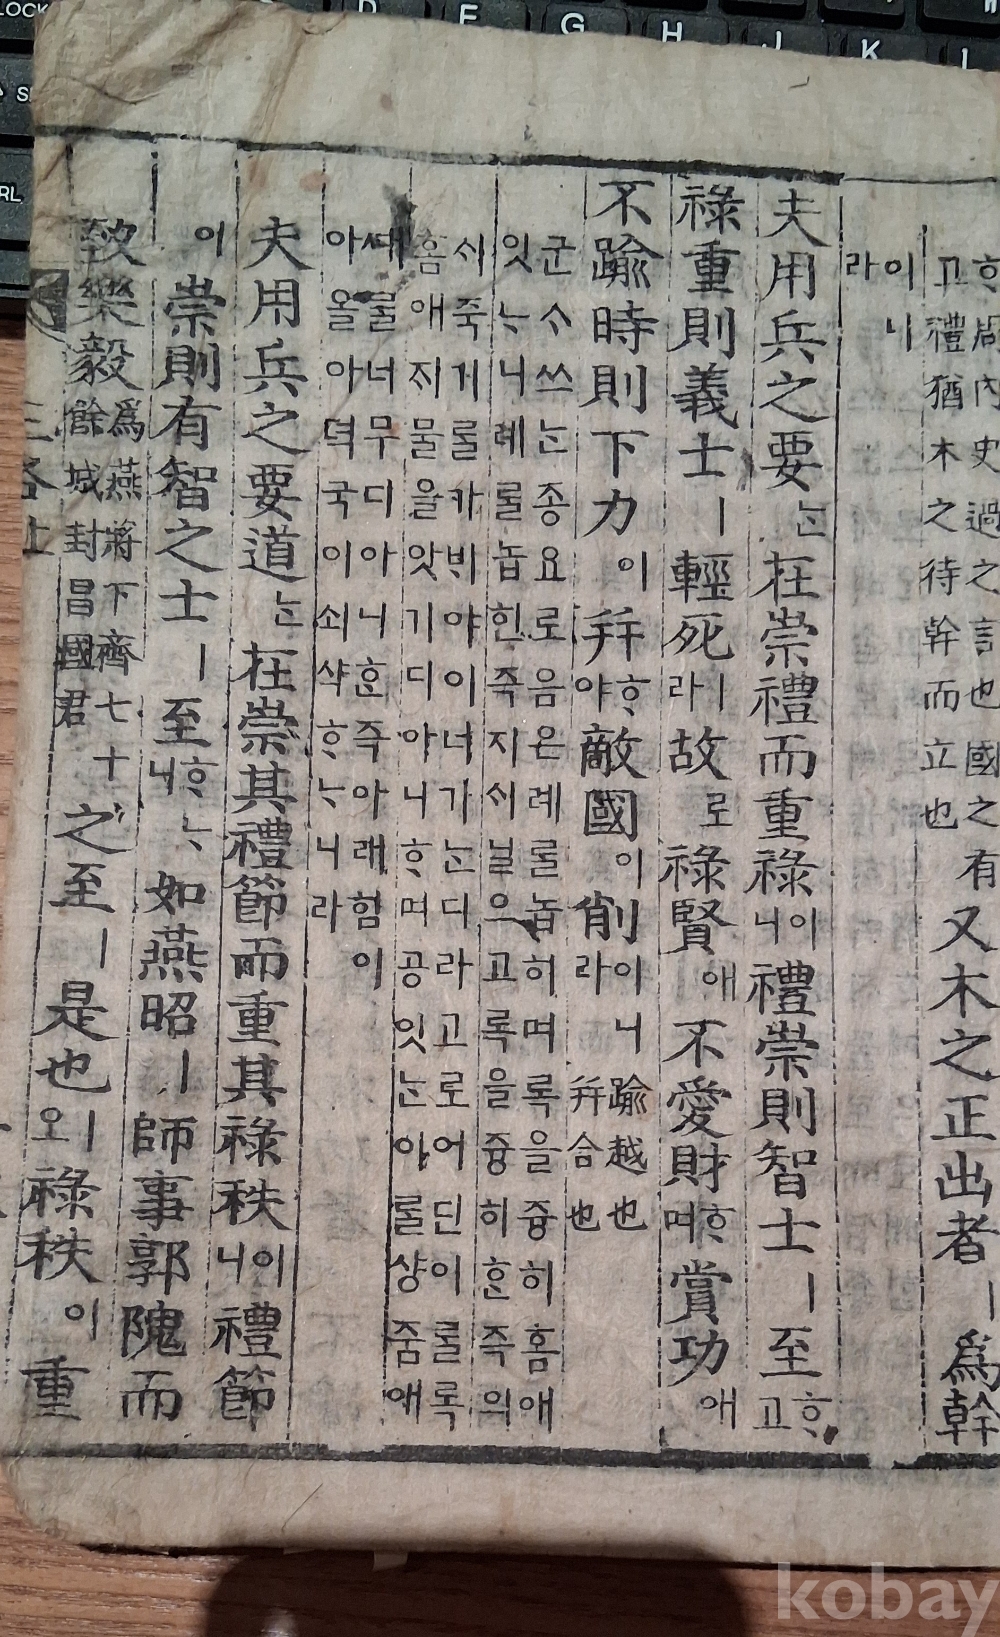 ᄒᆞ周內史過之言也國之有
고禮猶木之待幹而立也
又木之正出者ㅣ爲幹
이니
라
夫用兵之要ᄂᆞᆫ在崇禮而重祿이니禮崇則智士ㅣ至ᄒᆞ고
祿重則義士ㅣ輕死ㅣ라故로祿賢애不愛財ᄒᆞ며賞功애
不踰時則下力이幷ᄒᆞ야敵國이削이니라
踰越也
幷合也
군ᄉᆞ쓰ᄂᆞᆫ종요로옴은례ᄅᆞᆯ놉히며록을즁히홈애
잇ᄂᆞ니례ᄅᆞᆯ놉힌즉지ᄉᆡ닐으고록을즁히ᄒᆞᆫ즉의
ᄉᆡ죽기ᄅᆞᆯ가ᄇᆡ야이너기ᄂᆞᆫ디라고로어딘이ᄅᆞᆯ록
홈애ᄌᆡ물을앗기디아니ᄒᆞ며공잇ᄂᆞᆫ이ᄅᆞᆯ샹줌애
ᄣᅢᄅᆞᆯ너무디아니ᄒᆞᆫ즉아래힘이
아올아뎍국이쇠삭ᄒᆞᄂᆞ니라
夫用兵之要道ᄂᆞᆫ在崇其禮節而重其祿秩이니禮節
이崇則有智之士ㅣ至ᄒᆞᄂᆞ니如燕昭ㅣ師事郭隗而
致樂毅
爲燕將下齊七十
餘城封昌國君
之至ㅣ是也ㅣ오祿秩이重
三略上
LOCK
D
F
G
H
J
K
L
kobay